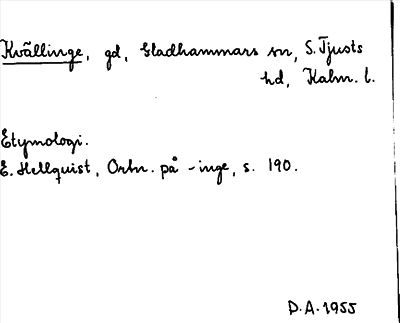 Kvällinge, gd, Gladhammars sn, S. Tjusts
hd, Kalm. l.
Etymologi.
E. Hellquist, Ortn. på -inge, s. 190.
D.A. 1955